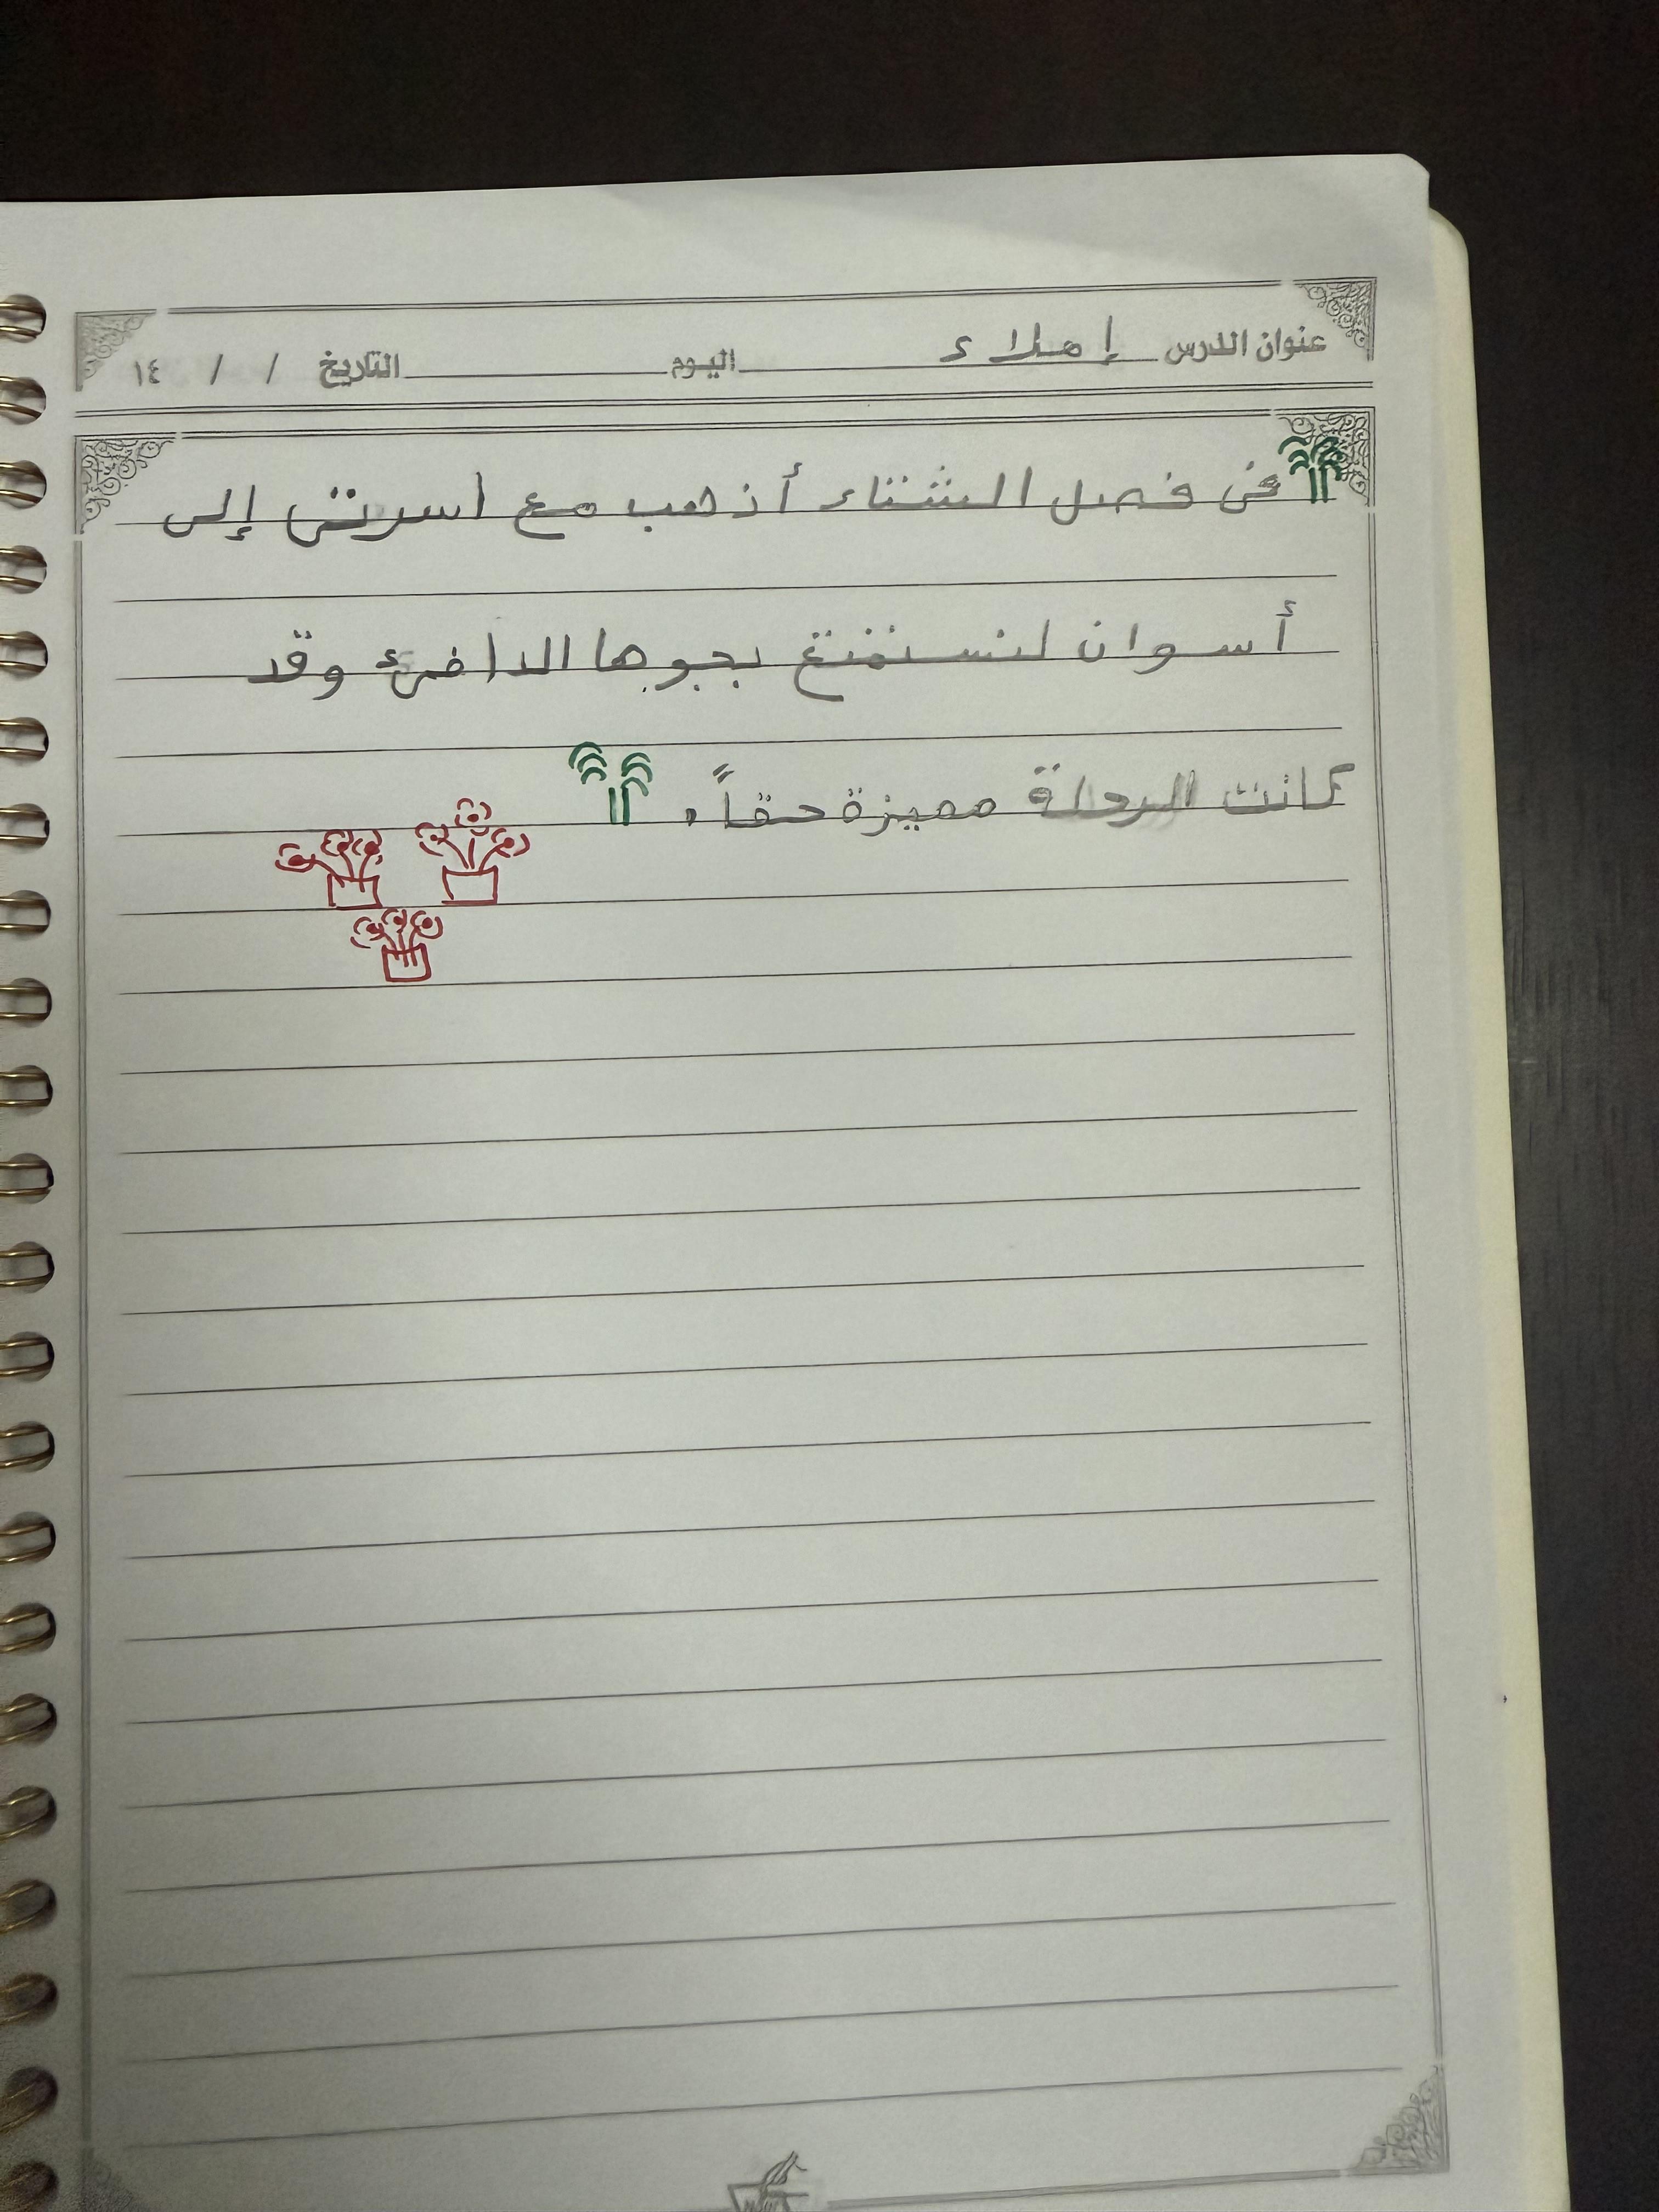 عنوان الدرس إملاء اليوم التاريخ / / ١٤
فى فصل الشتاء أذهب مع اسرتى إلى
أسوان لنستمتع بجوها الدافئ وقد
كانت الرحلة مميزة حقاً.